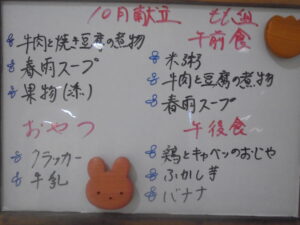 10月献立 もも組
牛肉と焼き豆腐の煮物
春雨スープ
果物(添)
おやつ
クラッカー
牛乳
午前食
米粥
牛肉と豆腐の煮物
春雨スープ
午後食
鶏とキャベツのおじや
ふかし芋
バナナ